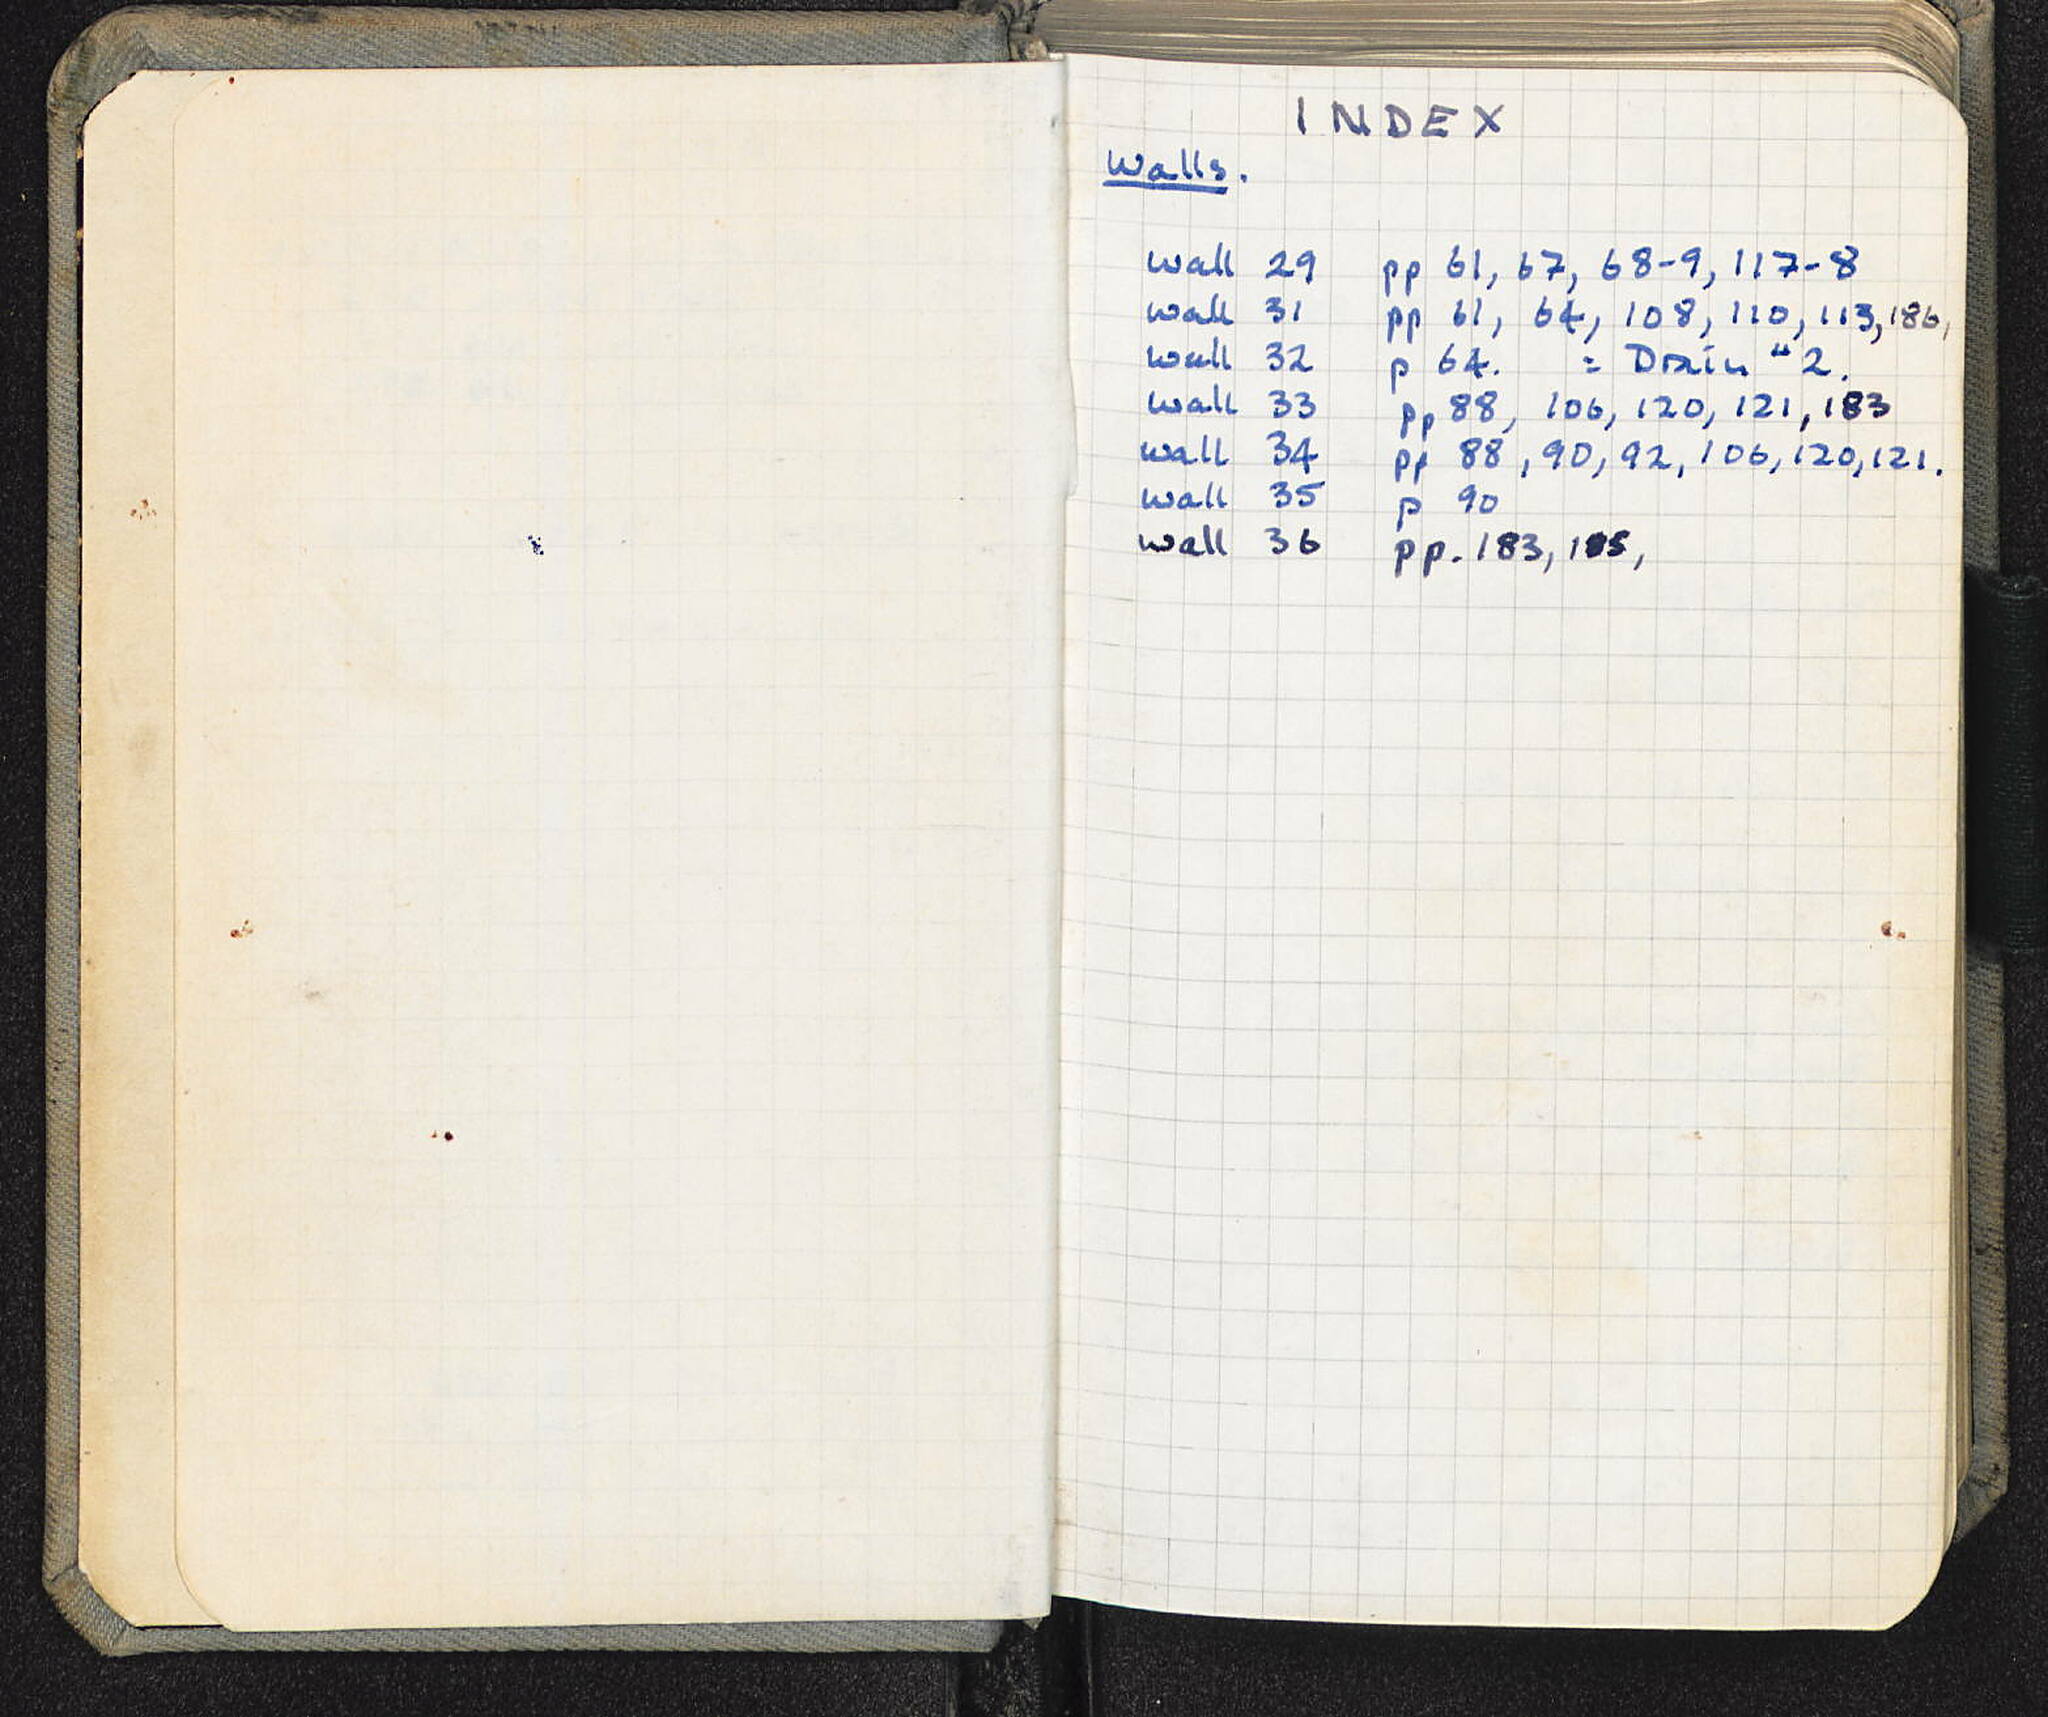 INDEX
Walls.
Wall 29 pp 61, 67, 68-9, 117-8
Wall 31 pp 61, 64, 108, 110, 113, 186,
Wall 32 p 64. = Drain #2.
Wall 33 pp 88, 106, 120, 121, 183
Wall 34 pp 88, 90, 92, 106, 120, 121.
Wall 35 p 90
Wall 36 pp. 183,